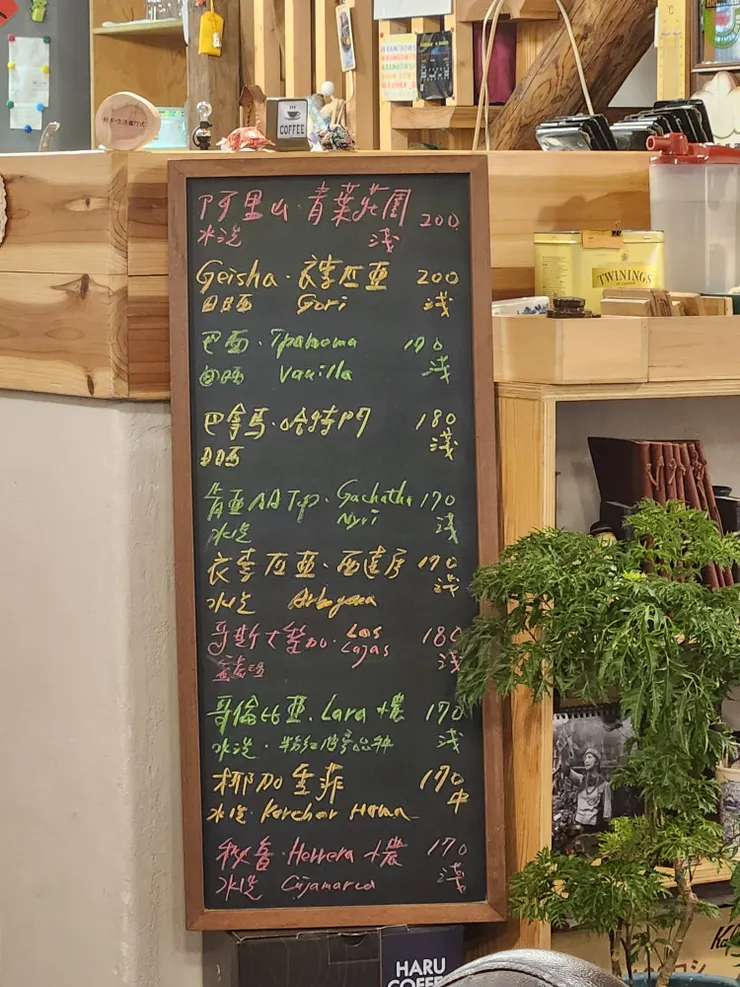 COFFEE
阿里山·青葉莊園 200
水洗 淺
Geisha·衣索匹亞 200
日晒 Gori 淺
TWININGS
巴西·Ipanema 170
日晒 Vanilla 淺
巴拿馬·哈特門 180
日晒 淺
肯亞AA Top·Gachatha 170
水洗 Nyri 淺
衣索匹亞·西達摩 170
水洗 淺
哥斯大黎加·Las Lajas 180
淺
哥倫比亞·Lara 火農 170
水洗·粉紅波旁品种 淺
椰加雪菲 170
水洗·Korchar Hama 中
秘魯·Herrera 火農 170
水洗 Cajamarca 淺
HARU
COFFEE